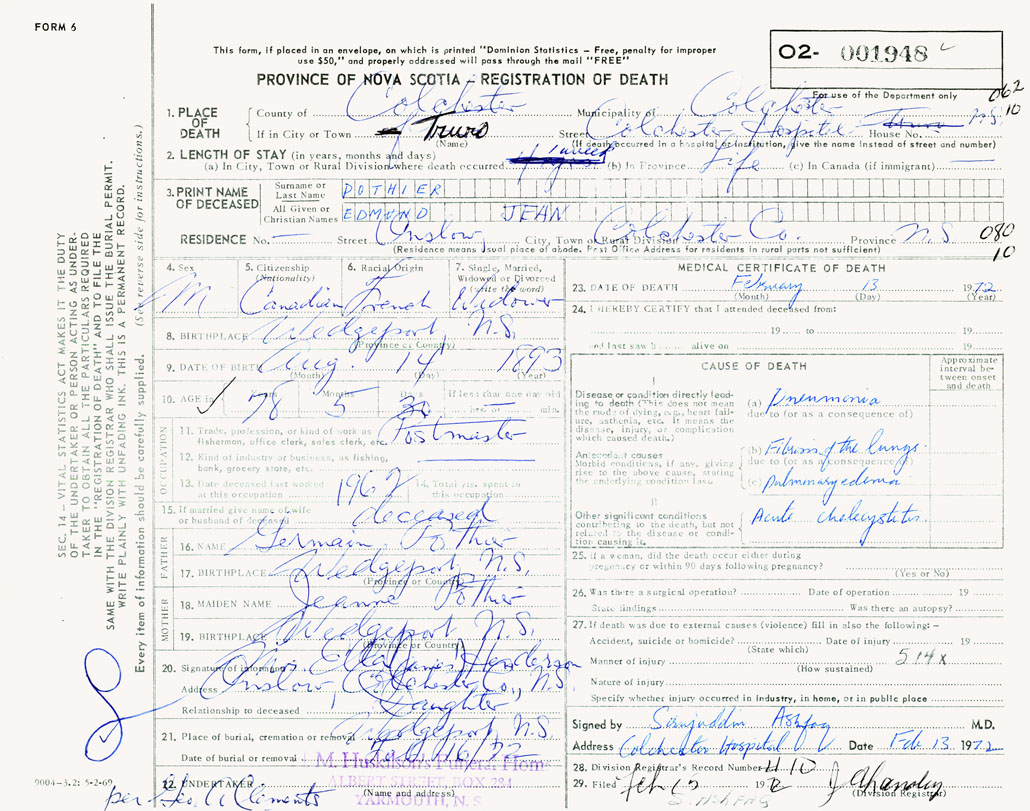 FORM 6
This form, if placed in an envelope, on which is printed "Dominion Statistics – Free, penalty for improper
use $50," and properly addressed will pass through the mail "FREE"
PROVINCE OF NOVA SCOTIA – REGISTRATION OF DEATH
O2- 001948
For use of the Department only
062
10
1. PLACE OF DEATH
County of Colchester Municipality of Colchester
If in City or Town Truro Street Colchester Hospital House No. N.S.
(Name) (If death occurred in a hospital or institution, give the name instead of street and number)
2. LENGTH OF STAY (in years, months and days)
(a) In City, Town or Rural Division where death occurred 1 week (b) In Province Life (c) In Canada (if immigrant) —
3. PRINT NAME OF DECEASED
Surname or Last Name POTHIER
All Given or Christian Names EDMUND JEAN
RESIDENCE No. — Street Onslow City, Town or Rural Division Colchester Co. Province N.S.
080
10
(Residence means usual place of abode. Post Office Address for residents in rural parts not sufficient)
4. Sex M
5. Citizenship (Nationality) Canadian
6. Racial Origin French
7. Single, Married, Widowed or Divorced (write the word) Widower
8. BIRTHPLACE Wedgeport, N.S.
(Province or Country)
9. DATE OF BIRTH Aug. 14 1893
(Month) (Day) (Year)
10. AGE in Years 78 Months 5 If less than one day old hrs. or min.
OCCUPATION
11. Trade, profession, or kind of work as fisherman, office clerk, sales clerk, etc. Postmaster
12. Kind of industry or business, as fishing, bank, grocery store, etc.
13. Date deceased last worked at this occupation 1962
14. Total yrs. spent in this occupation
15. If married give name of wife or husband of deceased deceased
FATHER
16. NAME Germain Pothier
17. BIRTHPLACE Wedgeport, N.S.
(Province or Country)
MOTHER
18. MAIDEN NAME Jeanne Pothier
19. BIRTHPLACE Wedgeport N.S.
(Province or Country)
20. Signature of informant Mrs. Ella (James) Henderson
Address Onslow, Colchester Co., N.S.
Relationship to deceased Daughter
21. Place of burial, cremation or removal Wedgeport N.S.
Date of burial or removal Feb 16/72
22. UNDERTAKER
(Name and address)
M. Huskilson's Funeral Home
ALBERT STREET, BOX 284
YARMOUTH, N.S.
per Geo. A Clements
9004-3.2: 5-2-69
MEDICAL CERTIFICATE OF DEATH
23. DATE OF DEATH February 13 1972
(Month) (Day) (Year)
24. I HEREBY CERTIFY that I attended deceased from:
19 to 19
and last saw h alive on 19
CAUSE OF DEATH
Approximate interval between onset and death
I
Disease or condition directly leading to death (This does not mean the mode of dying, e.g., heart failure, asthenia, etc. It means the disease, injury, or complication which caused death.)
(a) Pneumonia
due to (or as a consequence of)
Antecedent causes
Morbid conditions, if any, giving rise to the above cause, stating the underlying condition last.
(b) Fibrosis of the lungs
due to (or as a consequence of)
(c) Pulmonary edemia
II
Other significant conditions contributing to the death, but not related to the disease or condition causing it.
Acute cholecystitis.
25. If a woman, did the death occur either during pregnancy or within 90 days following pregnancy?
(Yes or No)
26. Was there a surgical operation? Date of operation 19
State findings Was there an autopsy?
27. If death was due to external causes (violence) fill in also the following: –
Accident, suicide or homicide? Date of injury 19
(State which)
Manner of injury 514X
(How sustained)
Nature of injury
Specify whether injury occurred in Industry, in home, or in public place
Signed by M.D.
Address Colchester Hospital Date Feb 13 1972
28. Division Registrar's Record Number 410
29. Filed Feb 15 1972
(Division Registrar)
SEC. 14 – VITAL STATISTICS ACT MAKES IT THE DUTY
OF THE UNDERTAKER OR PERSON ACTING AS UNDER-
TAKER TO OBTAIN ALL THE PARTICULARS REQUIRED
IN THE "REGISTRATION OF DEATH" AND TO FILE THE
SAME WITH THE DIVISION REGISTRAR WHO SHALL ISSUE THE BURIAL PERMIT.
WRITE PLAINLY WITH UNFADING INK. THIS IS A PERMANENT RECORD.
Every item of information should be carefully supplied. (See reverse side for instructions.)